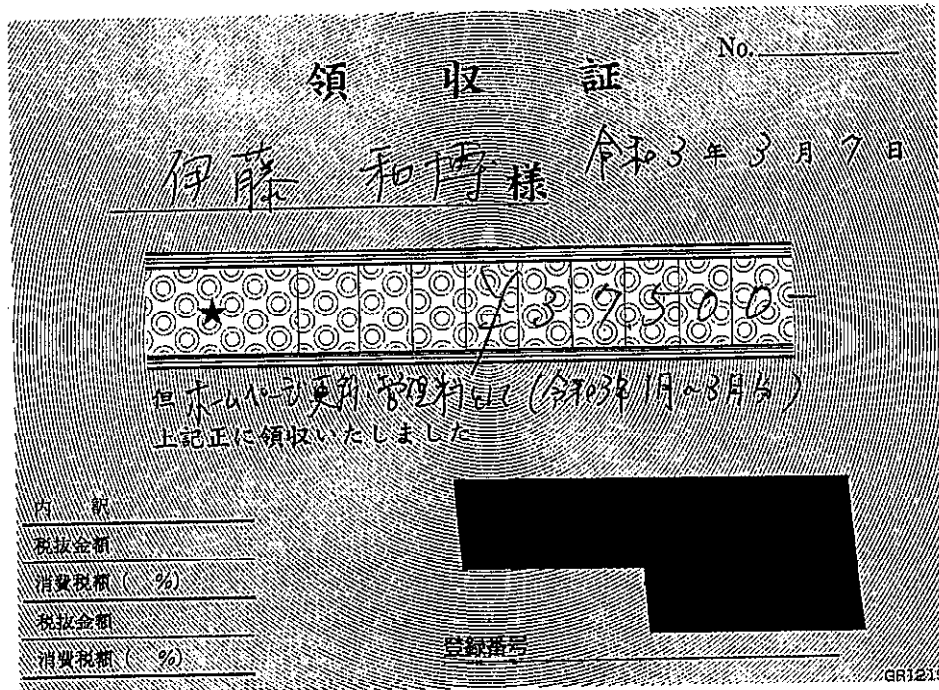 No.
領収証
伊藤 和博 様 令和3年3月7日
★ ¥37,500-
但 ホームページ更新・管理料として(令和3年1月~3月分)
上記正に領収いたしました
内訳
税抜金額
消費税額( %)
税抜金額
消費税額( %)
登録番号
GR121